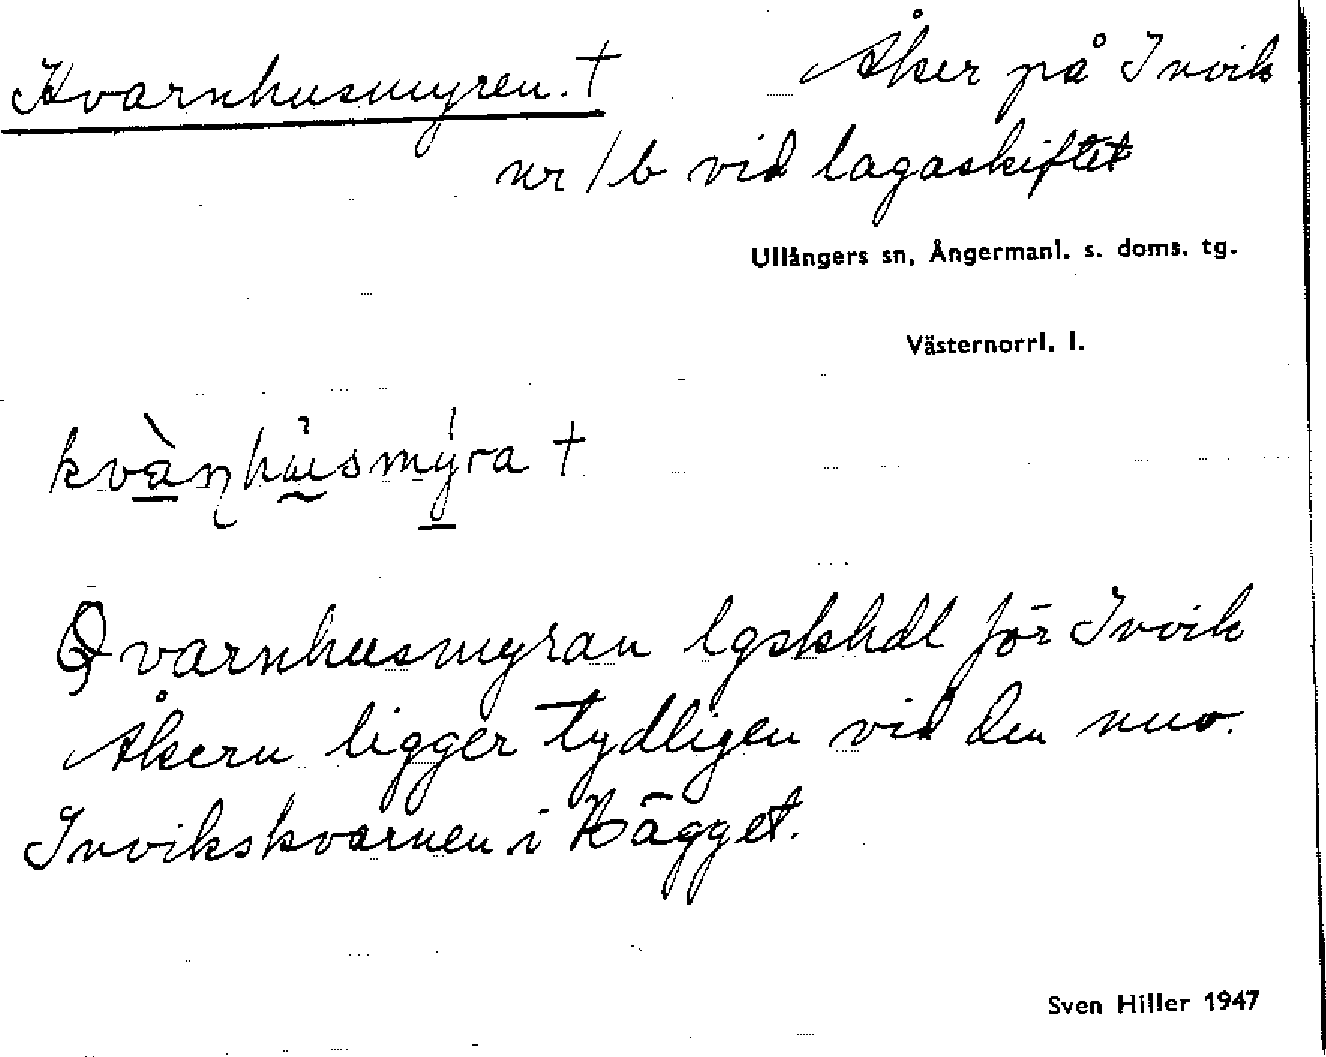 Kvarnhusmyren. † Åker på Invik
nr 1b vid lagaskiftet
Ullångers sn, Ångermanl. s. doms. tg.
Västernorrl. l.
kvàṇhùsmýra †
Qvarnhusmyran lgskhdl för Invik
Åkern ligger tydligen vid den nuv.
Invikskvarnen i Hägget.
Sven Hiller 1947